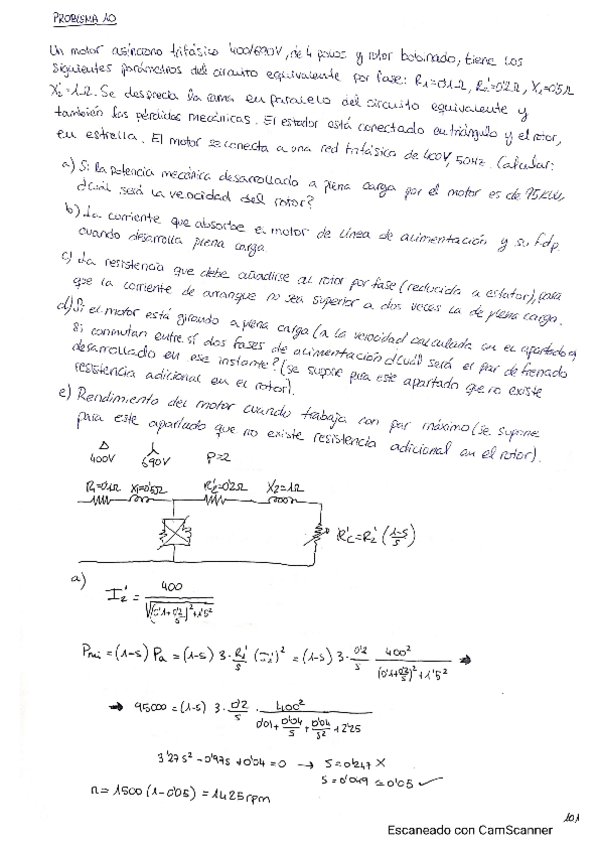 PROBLEMA 10
Un motor asíncrono trifásico 400/690V, de 4 polos y rotor bobinado, tiene los
siguientes parámetros del circuito equivalente por fase: R1=0'1Ω, R2'=0'2Ω, X1=0'5Ω
X2'=1Ω. Se desprecia la rama en paralelo del circuito equivalente y
también las pérdidas mecánicas. El estator está conectado en triángulo y el rotor,
en estrella. El motor se conecta a una red trifásica de 400V, 50Hz. Calcular:
a) Si la potencia mecánica desarrollada a plena carga por el motor es de 95kW,
¿Cuál será la velocidad del rotor?
b) La corriente que absorbe el motor de línea de alimentación y su fdp
cuando desarrolla plena carga.
c) La resistencia que debe añadirse al rotor por fase (reducida a estator), para
que la corriente de arranque no sea superior a dos veces la de plena carga.
d) Si el motor está girando a plena carga (a la velocidad calculada en el apartado a)
Si conmutan entre sí dos fases de alimentación ¿Cuál será el par de frenado
desarrollado en ese instante? (se supone para este apartado que no existe
resistencia adicional en el rotor).
e) Rendimiento del motor cuando trabaja con par máximo (se supone
para este apartado que no existe resistencia adicional en el rotor).
Δ 400V 690V P=2
R1=0'1Ω X1=0'5Ω R2'=0'2Ω X2'=1Ω
Rc'=R2'(1-s/s)
a) I2' = 400 / √((0'1+0'2/s)²+1'5²)
Pmi = (1-s) Pa = (1-s) 3·R2'/s (I2')² = (1-s) 3·0'2/s 400²/((0'1+0'2/s)²+1'5²) →
→ 95000 = (1-s) 3·0'2/s · 400²/(0'01+0'04/s+0'04/s²+2'25)
3'27s² - 0'97s + 0'04 = 0 → s = 0'247 X
s = 0'049 ≃ 0'05 ✓
n = 1500 (1-0'05) = 1425 rpm
101
Escaneado con CamScanner